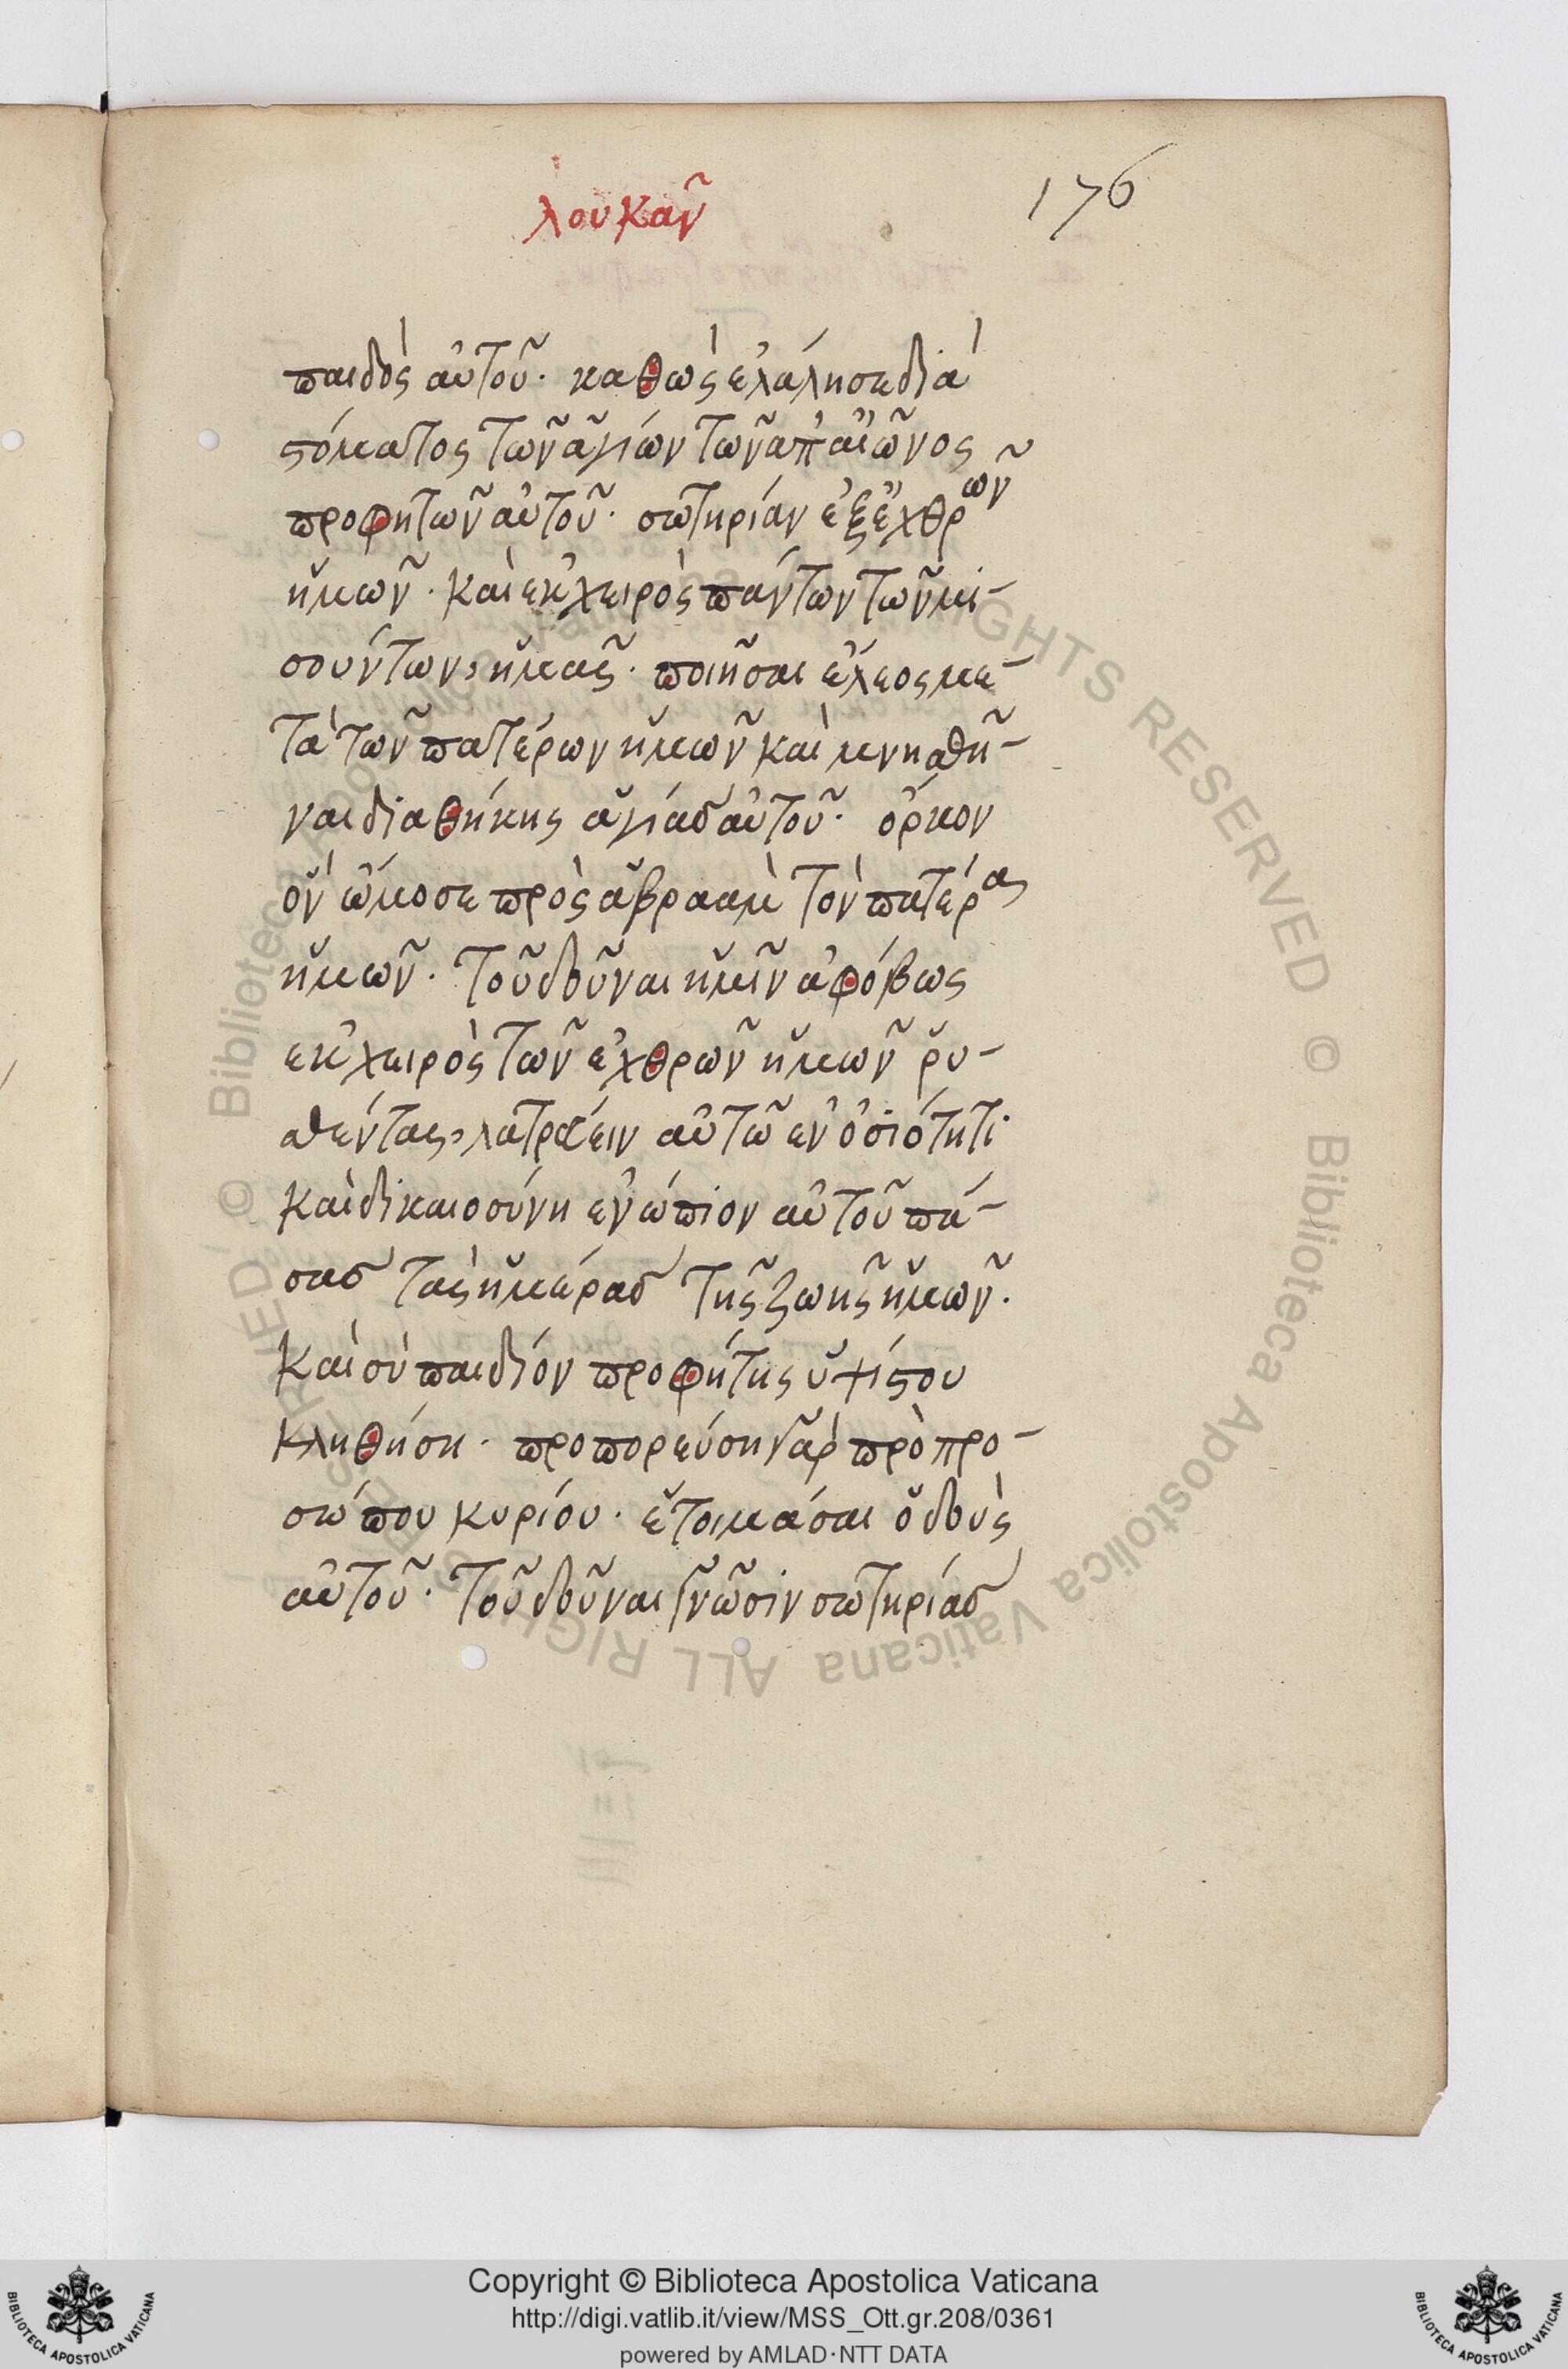 λουκᾶν
176
παιδὸς αὐτοῦ· καθὼς ἐλάλησε διὰ
στόματος τῶν ἁγίων τῶν ἀπ' αἰῶνος
προφητῶν αὐτοῦ· σωτηρίαν ἐξ ἐχθρῶν
ἡμῶν· καὶ ἐκ χειρὸς πάντων τῶν μι-
σούντων, ἡμᾶς· ποιῆσαι ἔλεος με-
τὰ τῶν πατέρων ἡμῶν καὶ μνησθῆ-
ναι διαθήκης ἁγίας αὐτοῦ· ὅρκον
ὃν ὤμοσε πρὸς ἁβραὰμ τὸν πατέρα
ἡμῶν· τοῦ δοῦναι ἡμῖν ἀφόβως
ἐκ χειρὸς τῶν ἐχθρῶν ἡμῶν ῥυ-
σθέντας, λατρεύειν αὐτῶ ἐν ὁσιότητι
καὶ δικαιοσύνη ἐνώπιον αὐτοῦ πά-
σας τὰς ἡμέρας τῆς ζωῆς ἡμῶν·
καὶ σὺ παιδίον προφήτης ὑψίστου
κληθήση· προπορεύση γὰρ πρὸ προ-
σώπου κυρίου· ἑτοιμάσαι ὁδοὺς
αὐτοῦ· τοῦ δοῦναι γνῶσιν σωτηρίας
© Biblioteca Apostolica Vaticana ALL RIGHTS RESERVED © Biblioteca Apostolica Vaticana ALL RIGHTS RESERVED
Copyright © Biblioteca Apostolica Vaticana
http://digi.vatlib.it/view/MSS_Ott.gr.208/0361
powered by AMLAD·NTT DATA
BIBLIOTECA APOSTOLICA VATICANA
BIBLIOTECA APOSTOLICA VATICANA